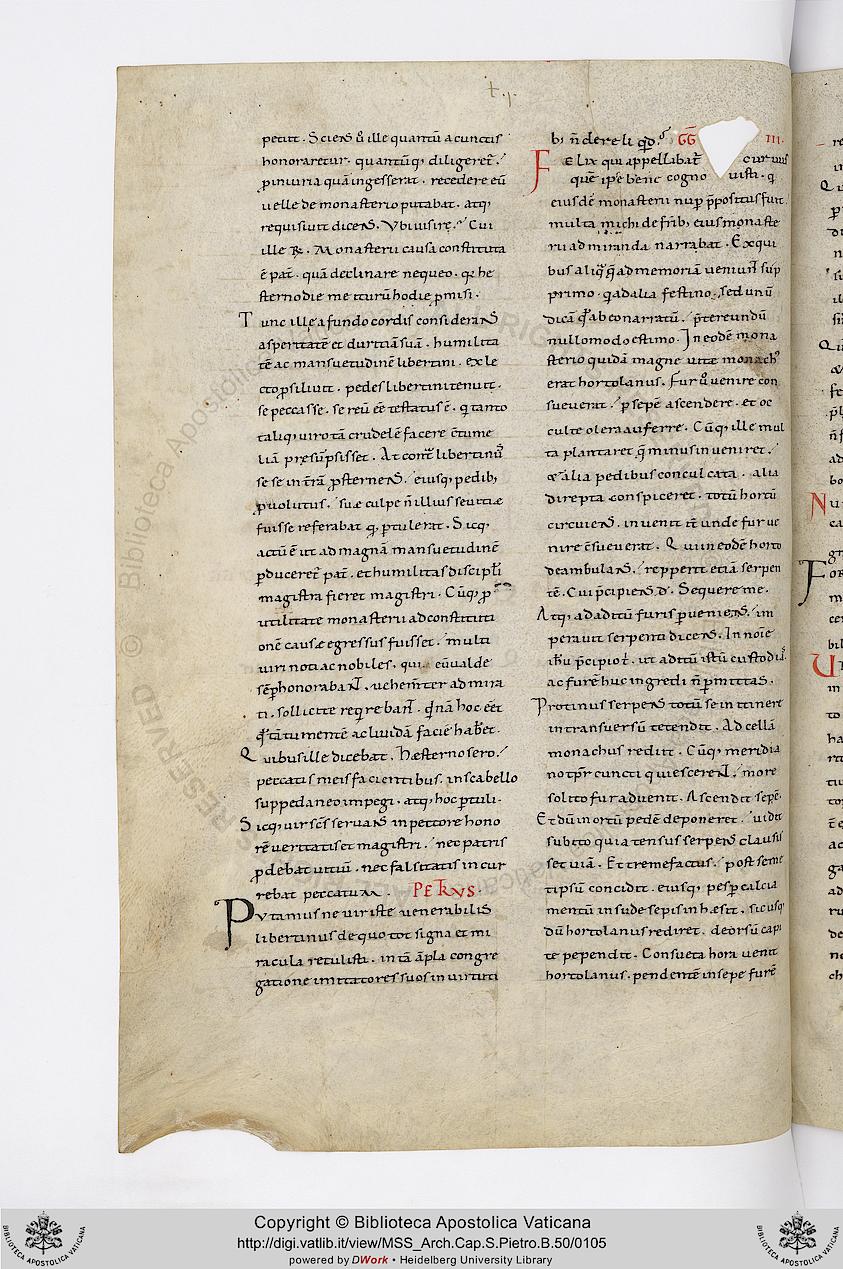 petiit. Sciens ů ille quantū a cunctis
honoraretur. quantūq; diligeret̄.
ꝓiniuria quā ingesserat. recedere eū
uelle de monasterio putabat. atq;
requisiuit dicens. Vbi uisirę. Cui
ille R̄. Monasterii causa constituta
ē pat̄. quā declinare nequeo. q̨ he
sterno die me iturū hodie ꝓmisi.
Tunc ille a fundo cordis considerans
asperitatē et duritiā suā. humilita
tē ac mansuetudinē libertini. ex le
cto ꝓsiliuit. pedes libertini tenuit.
se peccasse. se reū eē testatus ē. q̨ tanto
taliq; uiro tā crudelē facere c̄tume
liā presūpsisset. At cont̄ libertinus
se se in t̄rā ꝓsternens. eiusq; pedib;
ꝓuolutus. suę culpę n̄ illius seuitię
fuisse referabat q̨ ꝑtulerat. Sicq;
actū ē ut ad magnā mansuetudinē
ꝑduceret̄ pat̄. et humilitas discipli
magistra fieret magistri. Cūq; ꝓ
utilitate monasterii ad constituti
onē causę egressus fuisset. multi
uiri noti ac nobiles. qui eū ualde
sēꝑ honorabant. uehemt̄er ad mira
ti. sollicite requirebant. qd̄nā hoc eēt
qd̄ tā tumentē ac liuidā faciē habēt.
Quibus ille dicebat. Hęsterno sero.
peccatis meis facientibus. in scabello
suppedaneo impegi. atq; hoc ꝑtuli.
Sicq; uir sc̄s seruans in pectore hono
rē ueritatis et magistri. nec patris
ꝓdebat uitiū. nec falsitatis incur
rebat peccatum. PETRVS.
Putamus ne uir iste uenerabilis
libertinus de quo tot signa et mi
racula retulisti. in tā āpla congre
gatione imitatores suos in uirtuti
b; n̄ dereliqd̄. GG III.
Felix qui appellibat̄ curuus
quē ipse bene cogno uisti. q
eiusdē monasterii nuꝑ p̄positus fuit.
multa michi de frīb; eius monaste
rii admiranda narrabat. Ex qui
bus aliq̄ q̄ ad memoriā ueniunt sup
primo. q̨ ad alia festino. sed unū
dicā qd̄ ab eo narratū. p̄tereundū
nullomodo estimo. In eodē mona
sterio quidā magne uitę monachꝰ
erat hortolanus. Fur ů uenire con
sueuerat. ꝑ sepē ascendere. et oc
culte olera auferre. Cūq; ille mul
ta plantaret q̄ minus inueniret.
et alia pedibus conculcata. alia
direpta conspiceret. totū hortū
circuiens. inuenit iť unde fur ue
nire c̄sueuerat. Qui in eodē horto
deambulans. repperit etiā serpen
tē. Cui p̄cipiens d̄. Sequere me.
Atq; ad aditū furis ꝑueniens. im
perauit serpenti dicens. In noīe
ih̄u p̄cipio t̄. ut aditū istū custodias.
ac furē huc ingredi n̄ ꝑmittas.
Protinus serpens totū se in itinere
in transuersū tetendit. Ad cellā
monachus rediit. Cūq; meridia
no tp̄r cuncti quiescerent. more
solito fur aduenit. Ascendit sepē.
Et dū in ortū pedē deponeret. uidit
subito quia tensus serpens clausis
set uiā. Et tremefactus. post seme
tipsū concidit. eiusq; pes ꝑ calcia
mentū in sude sepis inhęsit. sicusq;
dū hortolanus rediret. deorsū capi
te pependit. Consueta hora uenit
hortolanus. pendentē in sepe furē
Copyright © Biblioteca Apostolica Vaticana
http://digi.vatlib.it/view/MSS_Arch.Cap.S.Pietro.B.50/0105
powered by DWork • Heidelberg University Library